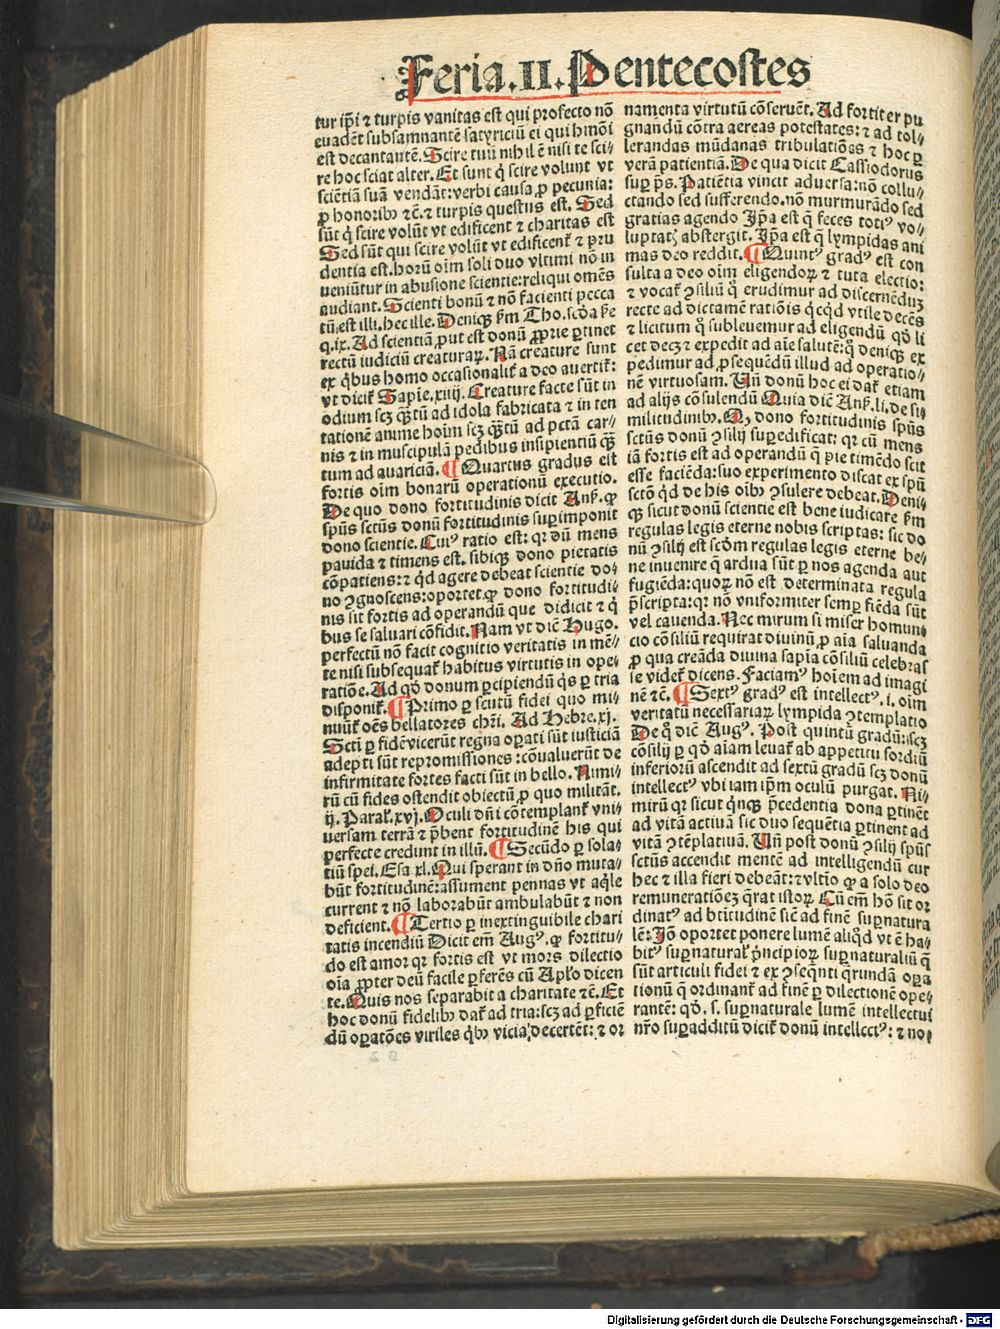 Feria.II. Pentecostes
tur ip̄i ⁊ turpis vanitas est qui profecto nō
euadēt subsamnantē satyriciū ei qui hmōi
est decantantē. Scire tuū nihil ē nisi te sci⸗
re hoc sciat alter. Et sunt q̇ scire volunt vt
sciētiā suā vendāt: verbi causa ꝓ pecunia:
ꝓ honoribꝰ ⁊c̄. ⁊ turpis questus est. Sed
sūt q̇ scire volūt vt edificent ⁊ charitas est
Sed sūt qui scire volūt vt edificent̄ ⁊ pru
dentia est. horū oīm soli duo vltimi nō in
ueniūtur in abusione scientie: reliqui omēs
audiant. Scienti bonū ⁊ nō facienti pecca
tū est illi. hec ille. Deniqꝫ ẜm Tho. scd̄a ẜe
q. ix. Ad scientiā ꝓut est donū ꝓprie ꝑtinet
rectū iudiciū creaturaꝝ. Nā creature sunt
ex q̇bus homo occasionalit̄ a deo auertit̄:
vt dicit̄ Sapie. xiiij. Creature facte sūt in
odium scꝫ qꝫtū ad idola fabricata ⁊ in ten
tationē anime hoīm scꝫ qꝫtū ad pctā car⸗
nis ⁊ in muscipulā pedibus insipientiū qꝫ
tum ad auariciā. ¶ Quartus gradus est
fortis oīm bonarū operationū executio.
De quo dono fortitudinis dicit Anẜ. ꝙ
spūs sctūs donū fortitudinis suꝑimponit
dono scientie. Cuiꝰ ratio est: qꝛ dū mens
pauida ⁊ timens est. sibiqꝫ dono pietatis
cōpatiens: ⁊ q̇d agere debeat scientie do⸗
no ꝯgnoscens: oportet ꝙ dono fortitudi⸗
nis sit fortis ad operandū que didicit ⁊ q̇
bus se saluari cōfidit. Nam vt dic̄ Hugo.
perfectū nō facit cognitio veritatis in mē⸗
te nisi subsequat̄ habitus virtutis in ope⸗
ratiōe. Ad qd̄ donum ꝑcipiendū q̇s ꝑ tria
disponit̄. ¶ Primo ꝑ scutū fidei quo mi⸗
niunt̄ oēs bellatores chr̄i. Ad Hebre. xj.
Scti ꝑ fidē vicerūt regna oꝑati sūt iusticiā
adepti sūt repromissiones: cōualuerūt de
infirmitate fortes facti sūt in bello. Nimi⸗
rū cū fides ostendit obiectū ꝓ quo militāt.
ij. Paral̄. xvj. Oculi dn̄i cōtemplant̄ vni⸗
uersam terrā ⁊ p̄bent fortitudinē his qui
perfecte credunt in illū. ¶ Secūdo ꝑ sola⸗
tiū spei. Esa xl. Qui sperant in dn̄o muta⸗
būt fortitudinē: assument pennas vt aq̇le
current ⁊ nō laborabūt ambulabūt ⁊ non
deficient. ¶ Tertio ꝑ inextinguibile chari
tatis incendiū Dicit em̄ Augꝰ. ꝙ fortitu⸗
do est amor qꝛ fortis est vt mors dilectio
oīa ꝓpter deū facile ꝑferēs cū Apl̄o dicen
te. Quis nos separabit a charitate ⁊c̄. Et
hoc donū fidelibꝰ dat̄ ad tria: scꝫ ad ꝑficiē
dū oꝑatōes viriles q̇bꝰ vicia decertēt: ⁊ or
namenta virtutū cōseruēt. Ad fortiter pu
gnandū cōtra aereas potestates: ⁊ ad tol⸗
lerandas mūdanas tribulatiōes ⁊ hoc ꝑ
verā patientiā. De qua dicit Cassiodorus
suꝑ ps̄. Patiētia vincit aduersa: nō collu⸗
ctando sed sufferendo. nō murmurādo sed
gratias agendo Ip̄a est q̄ feces totiꝰ vo⸗
luptatꝭ abstergit. Ip̄a est q̄ lympidas ani
mas deo reddit. ¶ Quintꝰ gradꝰ est con
sulta a deo oīm eligendoꝝ ⁊ tuta electio:
⁊ vocat̄ ꝯsiliū q̊ erudimur ad discernēduꝫ
recte ad dictamē ratiōis q̇cqd̄ vtile decēs
⁊ licitum q̊ subleuemur ad eligendū qd̄ li
cet decꝫ ⁊ expedit ad aīe salutē: q̊ deniqꝫ ex
pedimur ad ꝓsequēdū illud ad operatio⸗
nē virtuosam. Un̄ donū hoc ei dat̄ etiam
ad alijs cōsulendū Quia dic̄ Anẜ. li. de si⸗
militudinibꝰ. Qꝫ dono fortitudinis spūs
sctūs donū ꝯsilij suꝑedificat: qꝛ cū mens
iā fortis est ad operandū q̄ pie timēdo scit
esse faciēda: suo experimento discat ex spū
sctō q̇d de his oībꝰ ꝯsulere debeat. Deni⸗
qꝫ sicut donū scientie est bene iudicare ẜm
regulas legis eterne nobis scriptas: sic do
nū ꝯsilij est scd̄m regulas legis eterne be⸗
ne inuenire q̄ ardua sūt ꝑ nos agenda aut
fugiēda: quoꝝ nō est determinata regula
p̄scripta: qꝛ nō vniformiter semꝑ fiēda sūt
vel cauenda. Nec mirum si miser homun⸗
cio cōsiliū requirat diuinū ꝓ aīa saluanda
ꝓ qua creāda diuina sapīa cōsiliū celebras
se videt̄ dicens. Faciamꝰ hoīem ad imagi
nē ⁊c̄. ¶ Sextꝰ gradꝰ est intellectꝰ. i. oīm
veritatū necessariaꝝ lympida ꝯtemplatio
De q̊ dic̄ Augꝰ. Post quintū gradū: scꝫ
cōsilij ꝑ qd̄ aīam leuat̄ ab appetitu sordiū
inferiorū ascendit ad sextū gradū scꝫ donū
intellectꝰ vbi iam ip̄m oculū purgat. Ni⸗
mirū qꝛ sicut q̇nqꝫ p̄cedentia dona ꝑtinēt
ad vitā actiuā sic duo sequētia ꝑtinent ad
vitā ꝯtēplatiuā. Un̄ post donū ꝯsilij spūs
sctūs accendit mentē ad intelligendū cur
hec ⁊ illa fieri debeāt: ⁊ vltīo ꝙ a solo deo
remuneratiōeꝫ q̄rat istoꝝ Cū em̄ hō sit or
dinatꝰ ad btītudinē sic̄ ad finē suꝑnatura
lē: Iō oportet ponere lumē aliqd̄ vt ē ha⸗
bitꝰ suꝑnatural̄ p̄ncipioꝝ suꝑnaturaliū q̄
sūt articuli fidei ⁊ ex ꝯseq̄nti q̄rundā oꝑa
tionū q̄ ordinant̄ ad finē ꝑ dilectionē ope⸗
rantē: qd̄. s. suꝑnaturale lumē intellectui
nr̄o suꝑadditū dicit̄ donū intellectꝰ: ⁊ no⸗
Digitalisierung gefördert durch die Deutsche Forschungsgemeinschaft - DFG